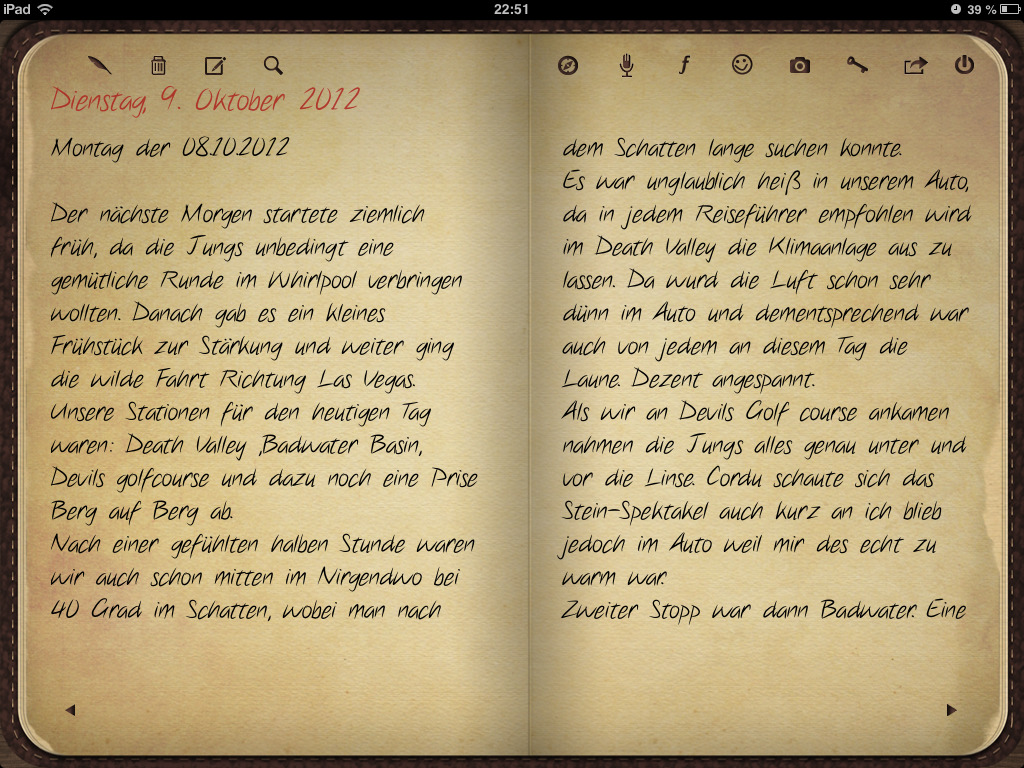 iPad 22:51 39 %
Dienstag, 9. Oktober 2012
Montag der 08.10.2012
Der nächste Morgen startete ziemlich
früh, da die Jungs unbedingt eine
gemütliche Runde im Whirlpool verbringen
wollten. Danach gab es ein kleines
Frühstück zur Stärkung und weiter ging
die wilde Fahrt Richtung Las Vegas.
Unsere Stationen für den heutigen Tag
waren: Death Valley ,Badwater Basin,
Devils golfcourse und dazu noch eine Prise
Berg auf Berg ab.
Nach einer gefühlten halben Stunde waren
wir auch schon mitten im Nirgendwo bei
40 Grad im Schatten, wobei man nach
dem Schatten lange suchen konnte.
Es war unglaublich heiß in unserem Auto,
da in jedem Reiseführer empfohlen wird
im Death Valley die Klimaanlage aus zu
lassen. Da wurd die Luft schon sehr
dünn im Auto und dementsprechend war
auch von jedem an diesem Tag die
Laune. Dezent angespannt.
Als wir an Devils Golf course ankamen
nahmen die Jungs alles genau unter und
vor die Linse. Cordu schaute sich das
Stein-Spektakel auch kurz an ich blieb
jedoch im Auto weil mir des echt zu
warm war.
Zweiter Stopp war dann Badwater. Eine